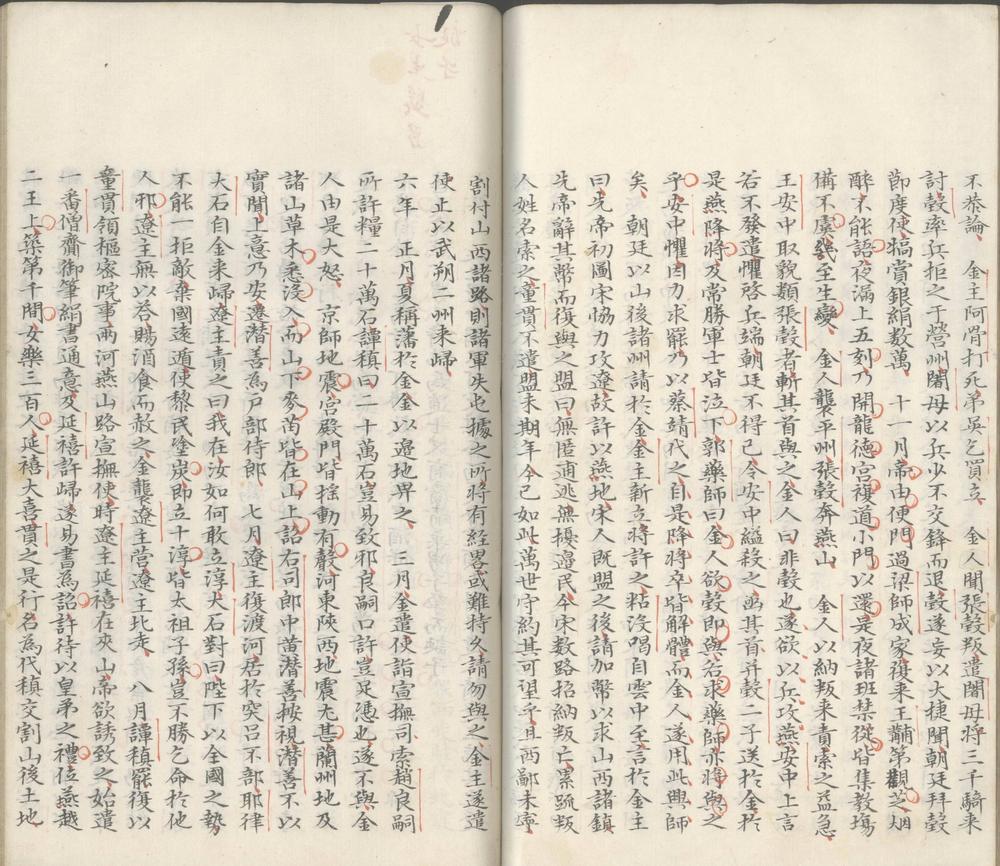 不恭論　金主阿骨打死弟吳乞買立　金人聞張瑴叛遣闍母將三千騎來
討瑴率兵拒之于營州闍母以兵少不交鋒而退瑴遂妄以大捷聞朝廷拜瑴
節度使犒賞銀絹数萬　十一月帝由便門過梁師成家復來王黼第觀芝烟
醉不能語夜漏上五刻乃開龍德宮複道小門以還是夜諸班禁從皆集教塲
備不虞幾至生變　金人襲平州張瑴奔燕山　金人以納叛来責索之益急
王安中取貌類張瑴者斬其首與之金人曰非瑴也遂欲以兵攻燕安中上言
若不發遣懼啓兵端朝廷不得已令安中縊殺之函其首并瑴二子送於金於
是燕降將及常勝軍士皆泣下郭藥師曰金人欲瑴即與若求藥師亦將與之
乎安中懼因力求罷乃以蔡靖代之自是降將卒皆解體而金人遂用此興師
矣　朝廷以山後諸州請於金金主新立將許之粘没喝自雲中至言於金主
曰先帝初圖宋恊力攻遼故許以燕地宋人既盟之後請加幣以求山西諸鎮
先帝辭其幣而復與之盟曰無匿逋逃無擾邊民今宋数路招納叛亡累疏叛
人姓名索之童貫不遣盟未期年今已如此萬世守約其可望乎且西鄙未寧
割付山西諸路則諸軍失屯據之所將有経畧或難持久請勿與之金主遂遣
使止以武朔二州来歸
六年　正月夏稱藩於金金以邊地畀之　三月金遣使詣宣撫司索趙良嗣
所許糧二十萬石譚稹曰二十萬石豈易致邪良嗣口許豈足憑也遂不與金
人由是大怒　京師地震宮殿門皆揺動有聲河東陝西地震尤甚蘭州地及
諸山草木悉没入而山下麥苗皆在山上詔右司郎中黄潛善按視潛善不以
實聞上意乃安遷潛善為戸部侍郎　七月遼主復渡河居於突吕不部耶律
大石自金来歸遼主責之曰我在汝如何敢立淳大石對曰陛下以全國之勢
不能一拒敵棄國遠遁使黎民塗炭即立十淳皆太祖子孫豈不勝乞命於他
人邪遼主無以荅賜酒食而赦之金襲遼主營遼王北走　八月譚稹罷復以
童貫領樞密院事兩河燕山路宣撫使時遼主延禧在夾山帝欲誘致之始遣
一番僧齎御筆絹書通意及延禧許歸遂易書為詔許待以皇弟之禮位燕越
二王上築第千間女樂三百人延禧大喜貫之是行名為代稹交割山後土地